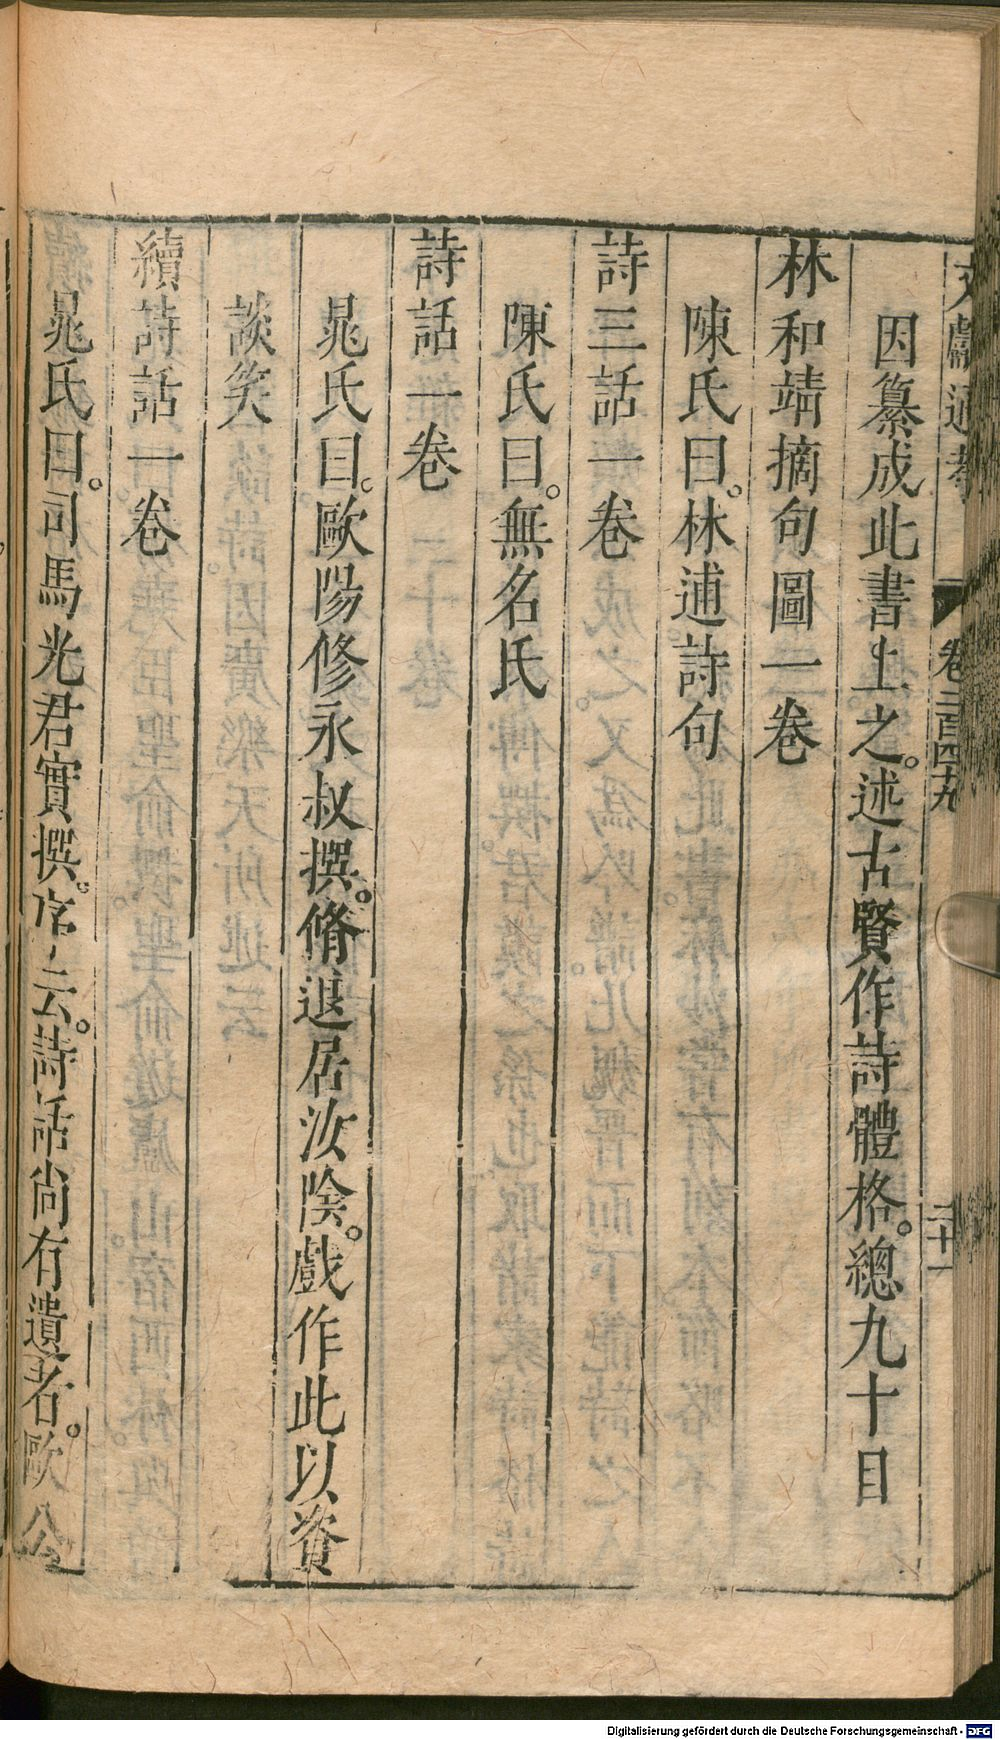 文獻通考 卷二百四十九 二十一
因纂成此書上之。述古賢作詩體格。總九十目
林和靖摘句圖一卷
陳氏曰。林逋詩句
詩三話一卷
陳氏曰。無名氏
詩話一卷
晁氏曰。歐陽修永叔撰。脩退居汝陰。戲作此以資
談笑
續詩話一卷
晁氏曰。司馬光君實撰。序云。詩話尙有遺者。歐公
Digitalisierung gefördert durch die Deutsche Forschungsgemeinschaft - DFG